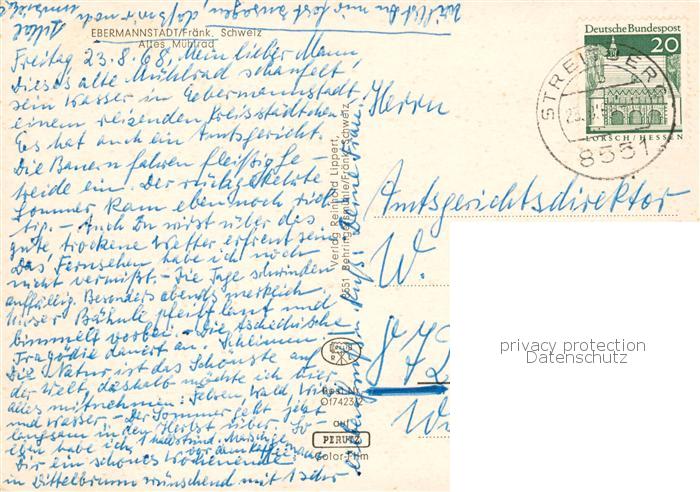 EBERMANNSTADT/Fränk. Schweiz
Altes Mühlrad
Freitag 23.8.68. Mein lieber Mann
Dieses alte Mühlrad schaufelt
sein Wasser in Ebermannstadt
einem reizenden Kreisstädtchen.
Es hat auch ein Amtsgericht.
Die Bauern fahren fleißig Ge-
treide ein. Der rückgekehrte
Sommer kam eben noch rich-
tig. – Auch Du wirst über das
gute trockene Wetter erfreut sein
Das Fernsehen habe ich noch
nicht vermißt. – Die Tage schwinden
auffällig. Besonders abends merklich
Unser Bähnle pfeift laut und
bimmelt vorbei. – Die Tschechische
Tragödie dauert an. Schlimm
Die Natur ist das Schönste auf
der Welt deshalb möchte ich hier
alles mitnehmen: Felsen, Wald, Wiese
und Wasser – Der Sommer geht jetzt
langsam in den Herbst über. So-
eben habe ich
Dir ein schönes Wochenende
in wünschend mit 1
Verlag Reinhold Lippert,
8551 Behringersmühle/Fränk. Schweiz
Best.Nr.
auf
PERUTZ
Color-Film
Deutsche Bundespost
20
LORSCH/HESSEN
STREITBERG
8551
Herrn
Amtsgerichtsdirektor
W.
privacy protection
Datenschutz